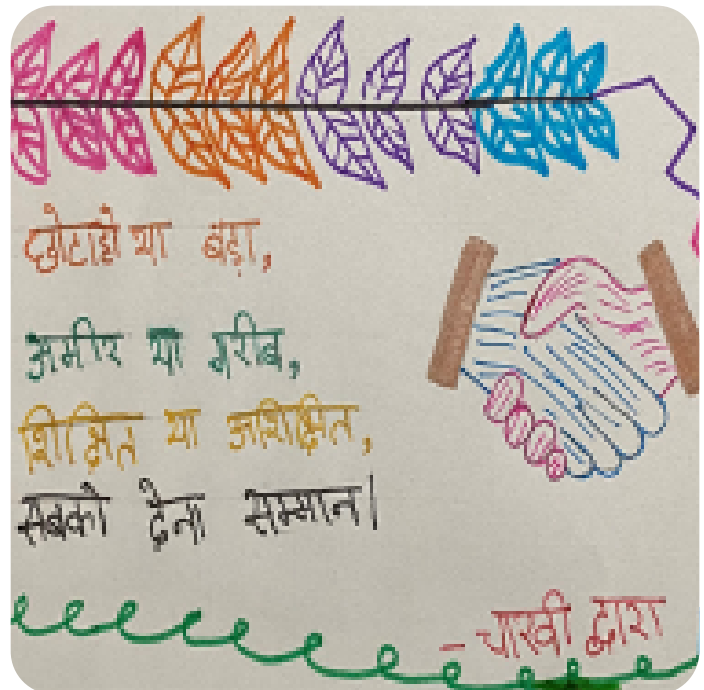 छोटा हो या बड़ा,
अमीर या गरीब,
शिक्षित या अशिक्षित,
सबको देना सम्मान।
- चारवी द्वारा